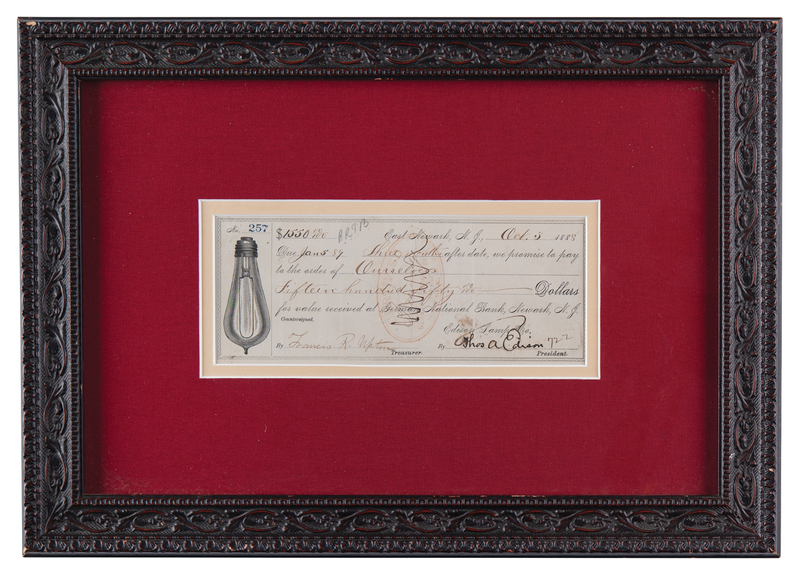 No. 257
$1550 00/100 East Newark, N. J., Oct. 5 1888
Due Jan 5 89 Three months after date, we promise to pay
to the order of Ourselves
Fifteen hundred fifty 00/100 Dollars
for value received at German National Bank, Newark, N. J.
Countersigned, Edison Lamp Co.
By Francis R. Upton Treasurer. By Thos A Edison 722 President.